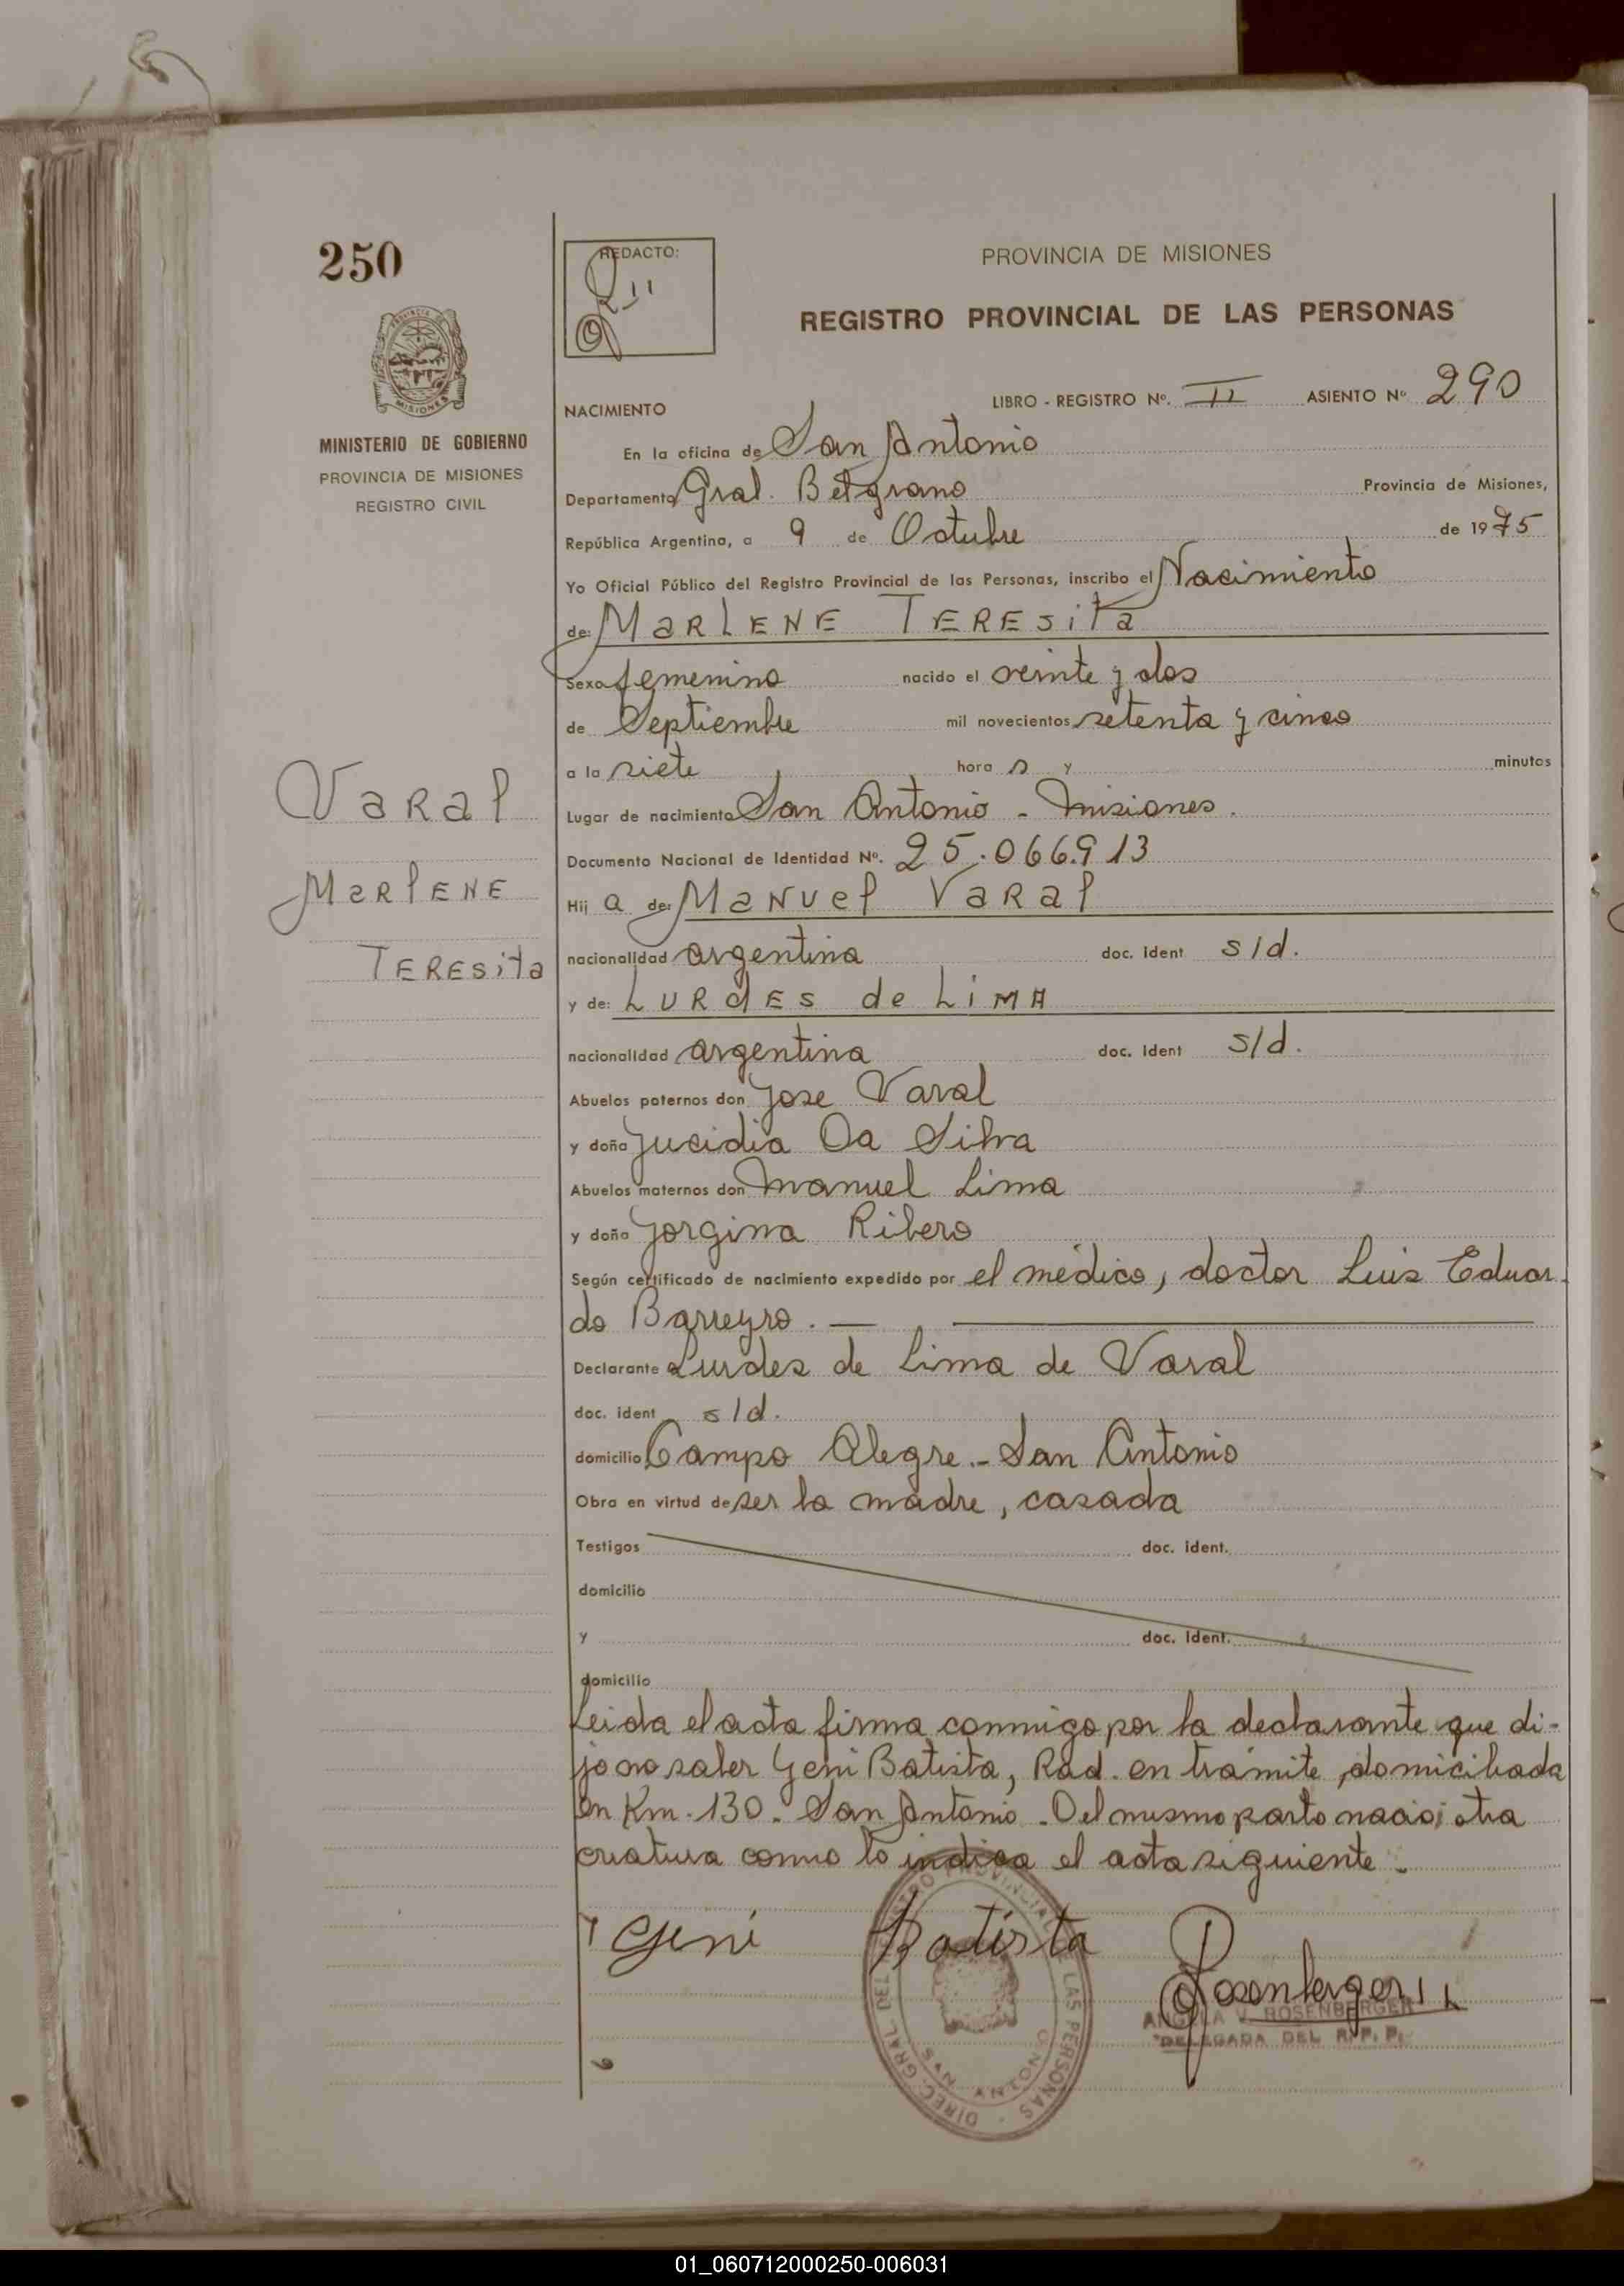 250
REDACTO:
PROVINCIA DE MISIONES
REGISTRO PROVINCIAL DE LAS PERSONAS
MINISTERIO DE GOBIERNO
PROVINCIA DE MISIONES
REGISTRO CIVIL
NACIMIENTO
LIBRO - REGISTRO Nº. II ASIENTO Nº 290
En la oficina de San Antonio
Departamento Gral. Belgrano Provincia de Misiones,
República Argentina, a 9 de Octubre de 1975
Yo Oficial Público del Registro Provincial de las Personas, inscribo el Nacimiento
de: MARLENE TERESita
Sexo femenino nacido el veinte y dos
de Septiembre mil novecientos setenta y cinco
a la siete hora s y minutos
Lugar de nacimiento San Antonio - Misiones.
Documento Nacional de Identidad Nº. 25.066.913
Varal
MARlENE
TERESita
Hij a de: MaNuel VaRal
nacionalidad argentina doc. ident s/d.
y de: LURdES de LiMA
nacionalidad argentina doc. ident s/d.
Abuelos paternos don Jose Varal
y doña Jucidia Da Silva
Abuelos maternos don Manuel Lima
y doña Jorgina Ribero
Según certificado de nacimiento expedido por el médico, doctor Luis Eduar-
do Barreyro. —
Declarante Lurdes de Lima de Varal
doc. ident s/d.
domicilio Campo Alegre.- San Antonio
Obra en virtud de ser la madre, casada
Testigos doc. ident.
domicilio
y doc. ident.
domicilio
Leida el acta firma conmigo por la declarante que di-
jo no saber Geni Batista, Rad. en trámite, domiciliada
en Km. 130 - San Antonio - Del mismo parto nació otra
criatura como lo indica el acta siguiente.
Geni Batista
Rosenberger
ANGELA V. ROSENBERGER
DELEGADA DEL R. P. P.
DIREC. GRAL. DEL REGISTRO PROVINCIAL DE LAS PERSONAS
SAN ANTONIO
01_060712000250-006031